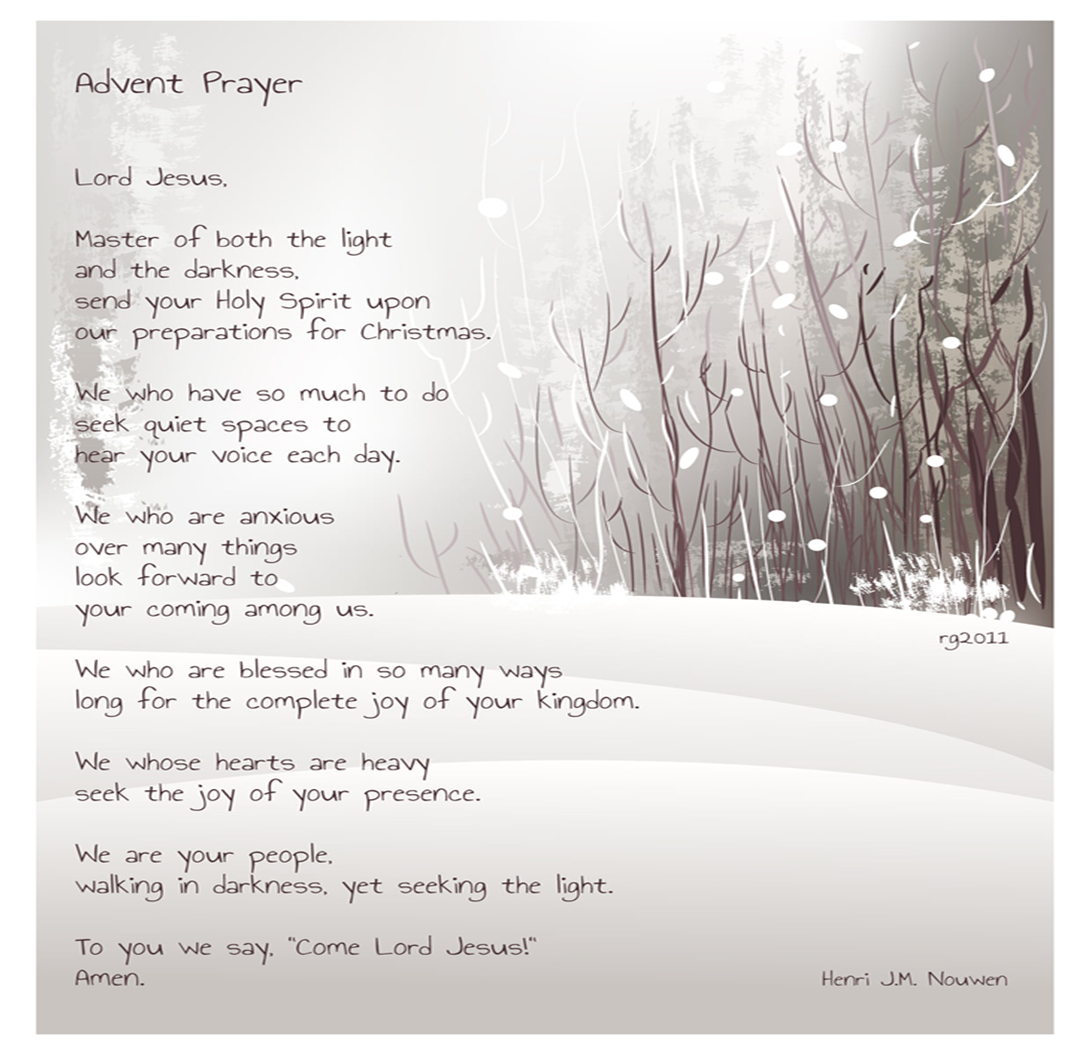 Advent Prayer
Lord Jesus,
Master of both the light
and the darkness,
send your Holy Spirit upon
our preparations for Christmas.
We who have so much to do
seek quiet spaces to
hear your voice each day.
We who are anxious
over many things
look forward to
your coming among us.
We who are blessed in so many ways
long for the complete joy of your kingdom.
We whose hearts are heavy
seek the joy of your presence.
We are your people,
walking in darkness, yet seeking the light.
To you we say, "Come Lord Jesus!"
Amen.
Henri J.M. Nouwen
rg2011